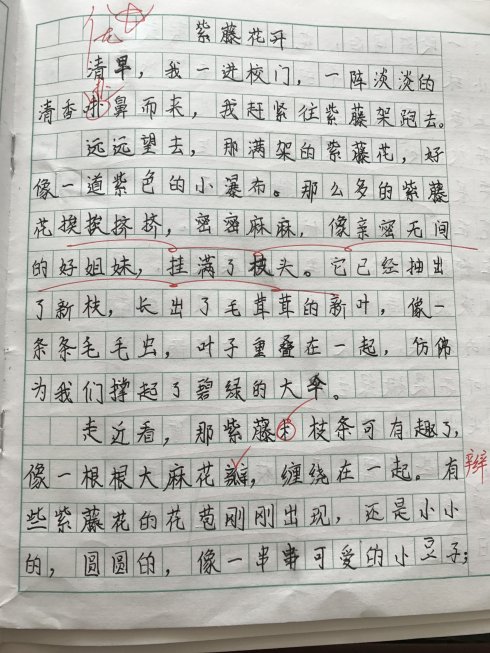 优
紫藤花开
清早，我一进校门，一阵淡淡的
清香扑鼻而来，我赶紧往紫藤架跑去。
远远望去，那满架的紫藤花，好
像一道紫色的小瀑布。那么多的紫藤
花挨挨挤挤，密密麻麻，像亲密无间
的好姐妹，挂满了枝头。它已经抽出
了新枝，长出了毛茸茸的新叶，像一
条条毛毛虫，叶子重叠在一起，仿佛
为我们撑起了碧绿的大伞。
走近看，那紫藤的枝条可有趣了，
像一根根大麻花瓣，缠绕在一起。有
辫
些紫藤花的花苞刚刚出现，还是小小
的，圆圆的，像一串串可爱的小豆子；